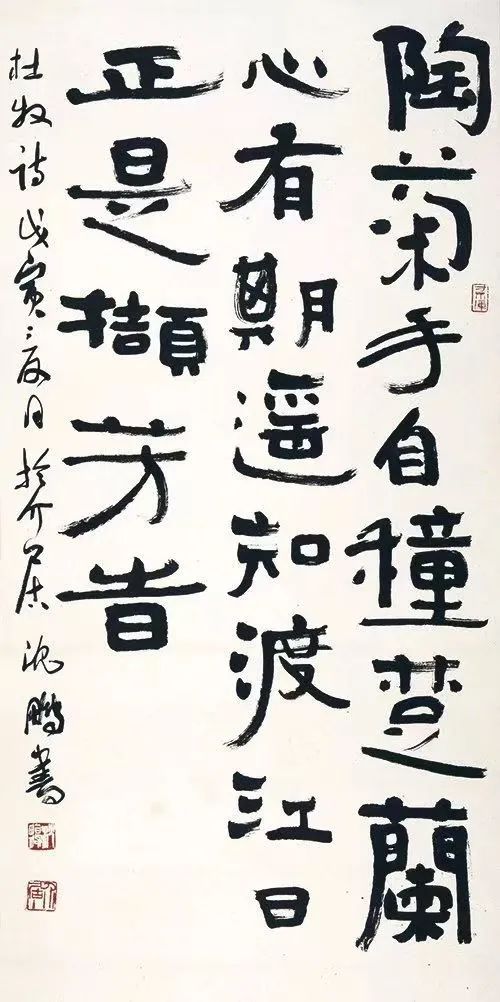 陶菊手自穜楚蘭
心有期遥知渡江日
正是擷芳旹
杜牧诗戊寅月於介居沈鹏書